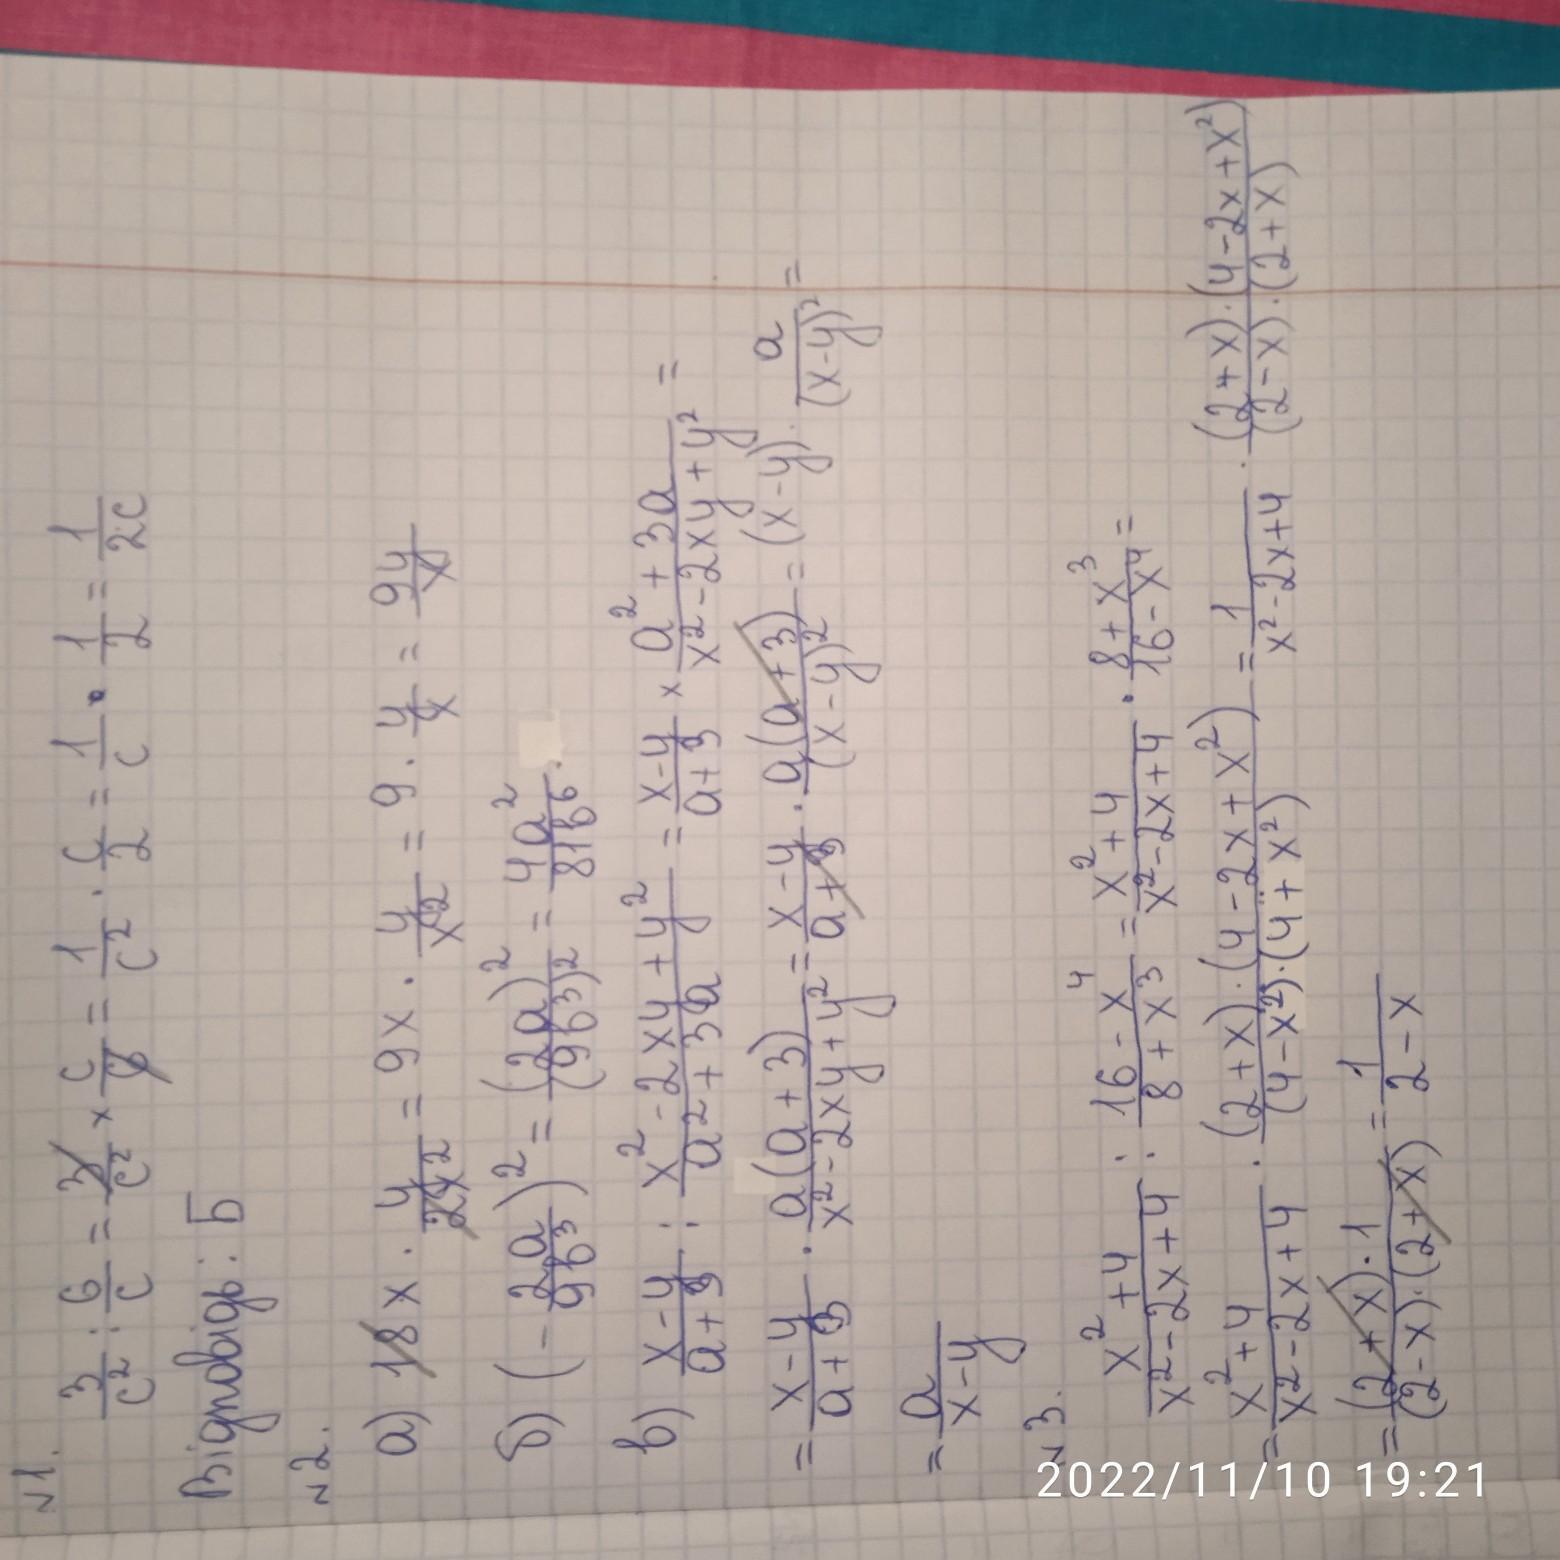 №1.
3/c² : 6/c = 3/c² × c/6 = 1/c² · c/2 = 1/c · 1/2 = 1/2c
Відповідь: Б
№2.
а) 18x · y/2x² = 9x · y/x² = 9 · y/x = 9y/x
б) (-2a/9b³)² = (2a)²/(9b³)² = 4a²/81b⁶.
в) x-y/a+3 : x²-2xy+y²/a²+3a = x-y/a+3 × a²+3a/x²-2xy+y² =
= x-y/a+3 · a(a+3)/x²-2xy+y² = x-y/a+3 · a(a+3)/(x-y)² = (x-y) · a/(x-y)² =
= a/x-y
№3.
x²+4/x²-2x+4 : 16-x⁴/8+x³ = x²+4/x²-2x+4 · 8+x³/16-x⁴ =
= x²+4/x²-2x+4 · (2+x)·(4-2x+x²)/(4-x²)·(4+x²) = 1/x²-2x+4 · (2+x)·(4-2x+x²)/(2-x)·(2+x)
= (2+x)·1/(2-x)·(2+x) = 1/2-x
2022/11/10 19:21